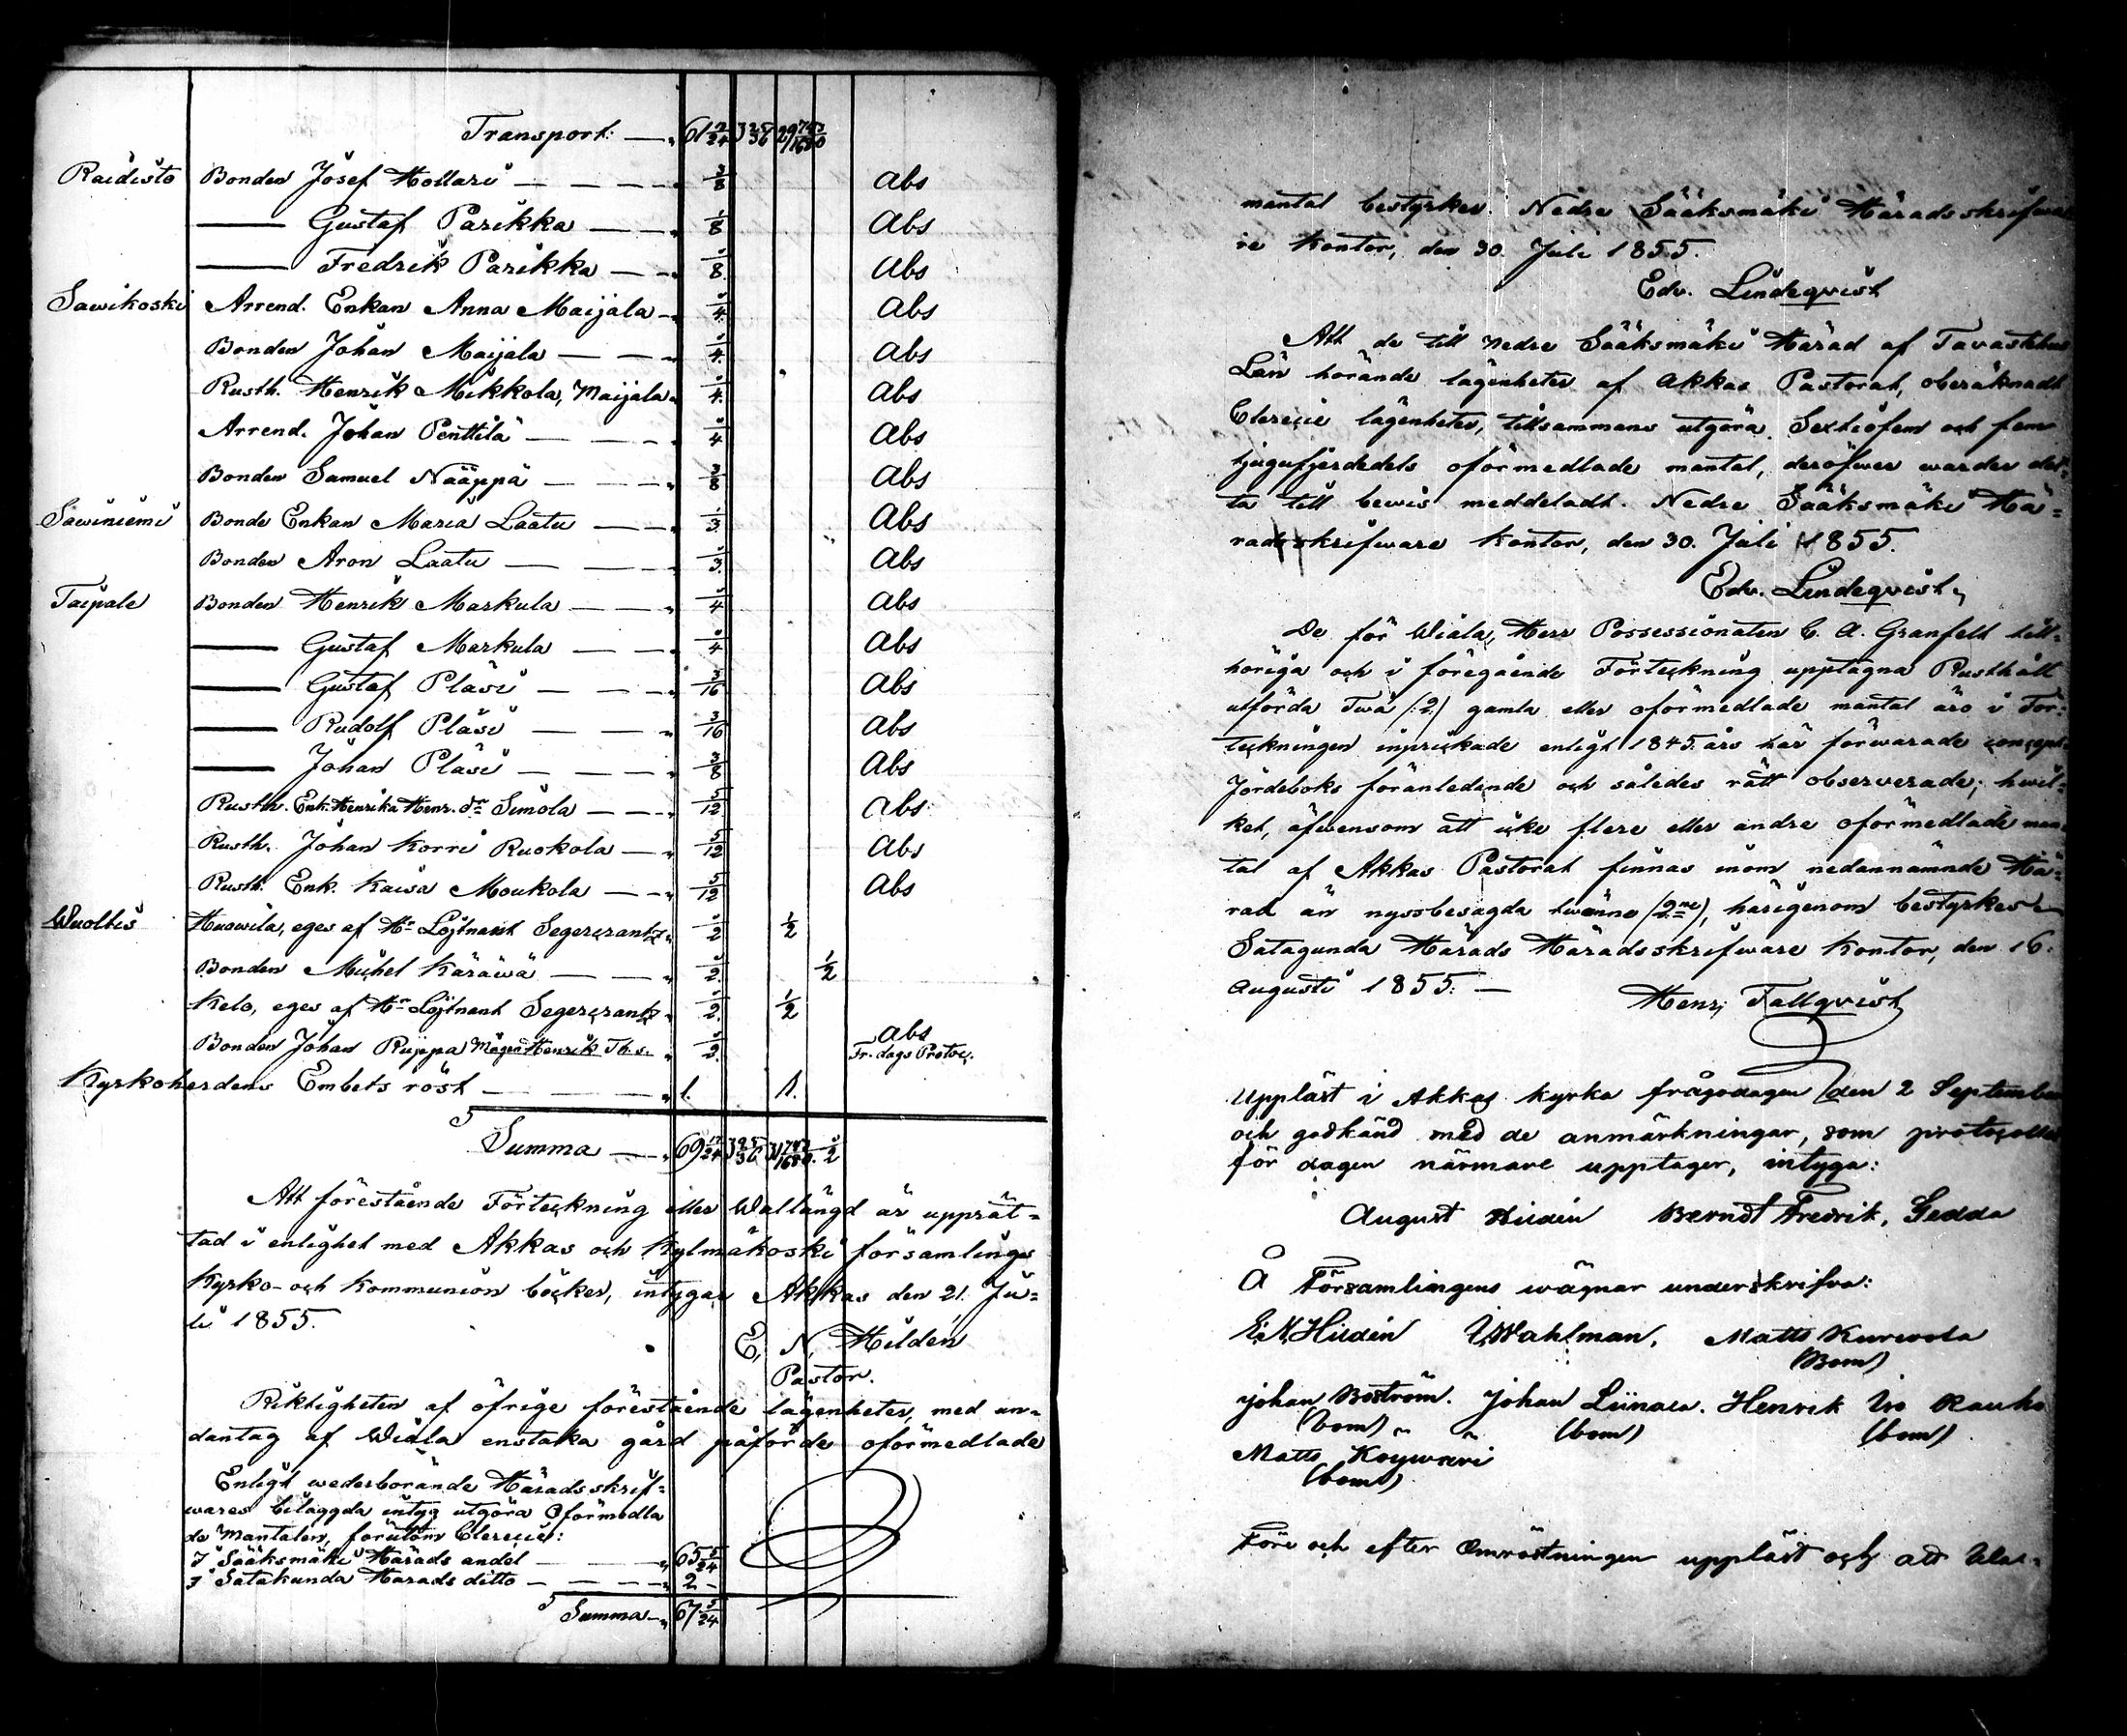 Transport: — „ 61 2/24 3 25/36 29 743/1680
Raidisto Bonden Josef Mollari — — — „ 3/8 Abs
— Gustaf Parikka — — „ 1/8 Abs
— Fredrik Parikka — — „ 1/8 Abs
Sawikoski Arrend. Enkan Anna Maijala — „ 1/4 Abs
Bonden Johan Maijala — — — „ 1/4 Abs
Rusth. Henrik Mikkola, Maijala „ 1/4 Abs
Arrend. Johan Penttilä — — — „ 1/4 Abs
Bonden Samuel Nääppä — — — „ 3/8 Abs
Sawiniemi Bonde Enkan Maria Laatu — — „ 1/3 Abs
Bonden Aron Laatu — — — „ 1/3 Abs
Taipale Bonden Henrik Markula — — — „ 1/4 Abs
— Gustaf Markula — — „ 1/4 Abs
— Gustaf Pläsi — — — „ 3/16 Abs
— Rudolf Pläsi — — — „ 3/16 Abs
— Johan Pläsi — — — „ 3/8 Abs
Rusth. Enk. Henrika Henr. dr Simola — — „ 5/12 Abs
Rusth. Johan Korri Ruokola — „ 5/12 Abs
Rusth. Enk. Kaisa Moukola — — „ 5/12 Abs
Wuoltis Huowila, eges af Hr Löjtnant Segercrantz „ 1/2 1/2
Bonden Michel Käräwä — — — „ 1/2 1/2
Kelo, eges af Hr Löjtnant Segercrantz „ 1/2 1/2
Bonden Johan Ruppa Mågen Henrik Th. s. „ 1/2 Abs
Fr. dags Protoc.
Kyrkoherdens Embets röst — — — „ 1. 1.
Summa — „ 69 17/24 3 25/36 31 743/1680 1/2
Att förestående Förteckning eller Wallängd är upprät-
tad i enlighet med Akkas och Kylmäkoski församlings
Kyrko- och Kommunion böcker, intygar Akkas den 21. Ju-
li 1855.
E. N. Hildén
Pastor.
Riktigheten af öfrige förestående lägenheter, med un-
dantag af Wiala enstaka gård påförde oförmedlade
Enligt wederborande Häradsskrif-
wares bilaggda intyg utgöra Oförmedla
de Mantalen, förutom Clerecie:
I Sääksmäki Härads andel — — „ 65 5/24
I Satakunda Harads ditto — — — „ 2 —
Summa — „ 67 5/24
mantal bestyrker. Nedre Sääksmäki Häradsskrifwa
re Kontor, den 30. Juli 1855.
Edv. Lindeqvist
Att de till Nedre Sääksmäki Härad af Tavastehus
Län hörande lägenheter af Akkas Pastorat, oberäknadt
Clerecie lägenheter, tillsammans utgöra Sextiofem och fem
tjugufjerdedels oförmedlade mantal, deröfwer warder det-
ta till bewis meddeladt. Nedre Sääksmäki Hä-
radsskrifware Kontor, den 30. Juli 1855.
Edv. Lindeqvist,
De för Wiala, Herr Possessionaten C. A. Granfelt till-
höriga och i föregående Förteckning upptagna Rusthåll
utförda Twå (:2:) gamla eller oförmedlade mantal äro i För-
teckningen inprickade enligt 1845 års här förwarade concept
Jordeboks föranledande och således rätt observerade; hwil-
ket, äfwensom att icke flere eller andre oförmedlade man
tal af Akkas Pastorat finnas inom nedannämnde Hä-
rad än nyssbesagda twänne (2ne), härigenom bestyrkes.
Satagunda Härads Häradsskrifware Kontor, den 16.
Augusti 1855. —
Henr. Tallqvist
Uppläst i Akkas kyrka frågodagen den 2 September
och godkänd med de anmärkningar, som protocollet
för dagen närmare upptager, intyga:
August Hildén Berndt Fredrik Gedda
Å Församlingens wägnar underskrifva:
E. N. Hildén Wahlman, Matts Kurwola
(Bom)
Johan Boström. Johan Liinola. Henrik Iso Rauko
(bom) (bom) (bom)
Matts Köywäri
(bom)
Före och efter Omröstningen uppläst och att Wal-